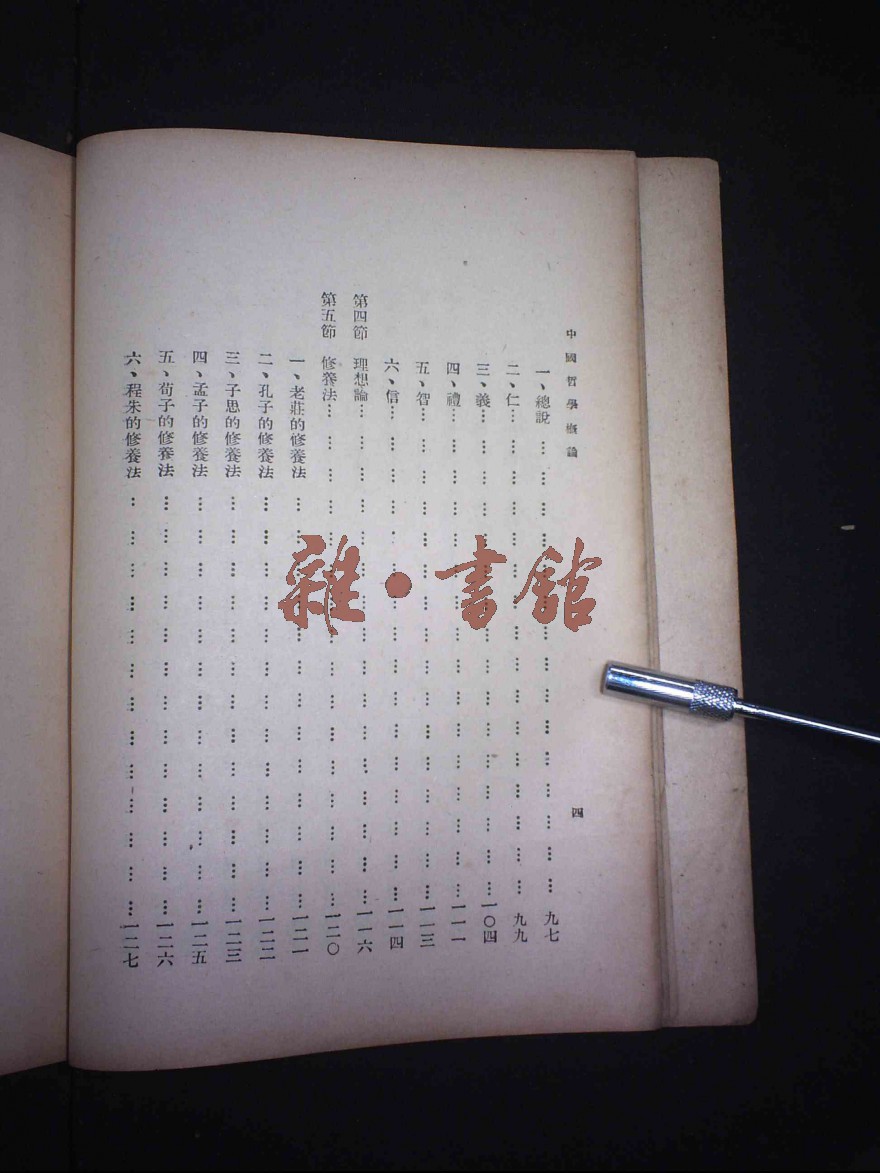 中國哲學概論
四
一、總說 … … … … … … … … … … … … … 九七
二、仁… … … … … … … … … … … … … … 九九
三、義… … … … … … … … … … … … … … 一〇四
四、禮… … … … … … … … … … … … … … 一一一
五、智… … … … … … … … … … … … … … 一一三
六、信… … … … … … … … … … … … … … 一一四
第四節 理想論… … … … … … … … … … … … … … 一一六
第五節 修養法… … … … … … … … … … … … … … 一二〇
一、老莊的修養法 … … … … … … … … … … … … 一二一
二、孔子的修養法 … … … … … … … … … … … … 一二二
三、子思的修養法 … … … … … … … … … … … … 一二三
四、孟子的修養法 … … … … … … … … … … … … 一二五
五、荀子的修養法 … … … … … … … … … … … … 一二六
六、程朱的修養法 … … … … … … … … … … … … 一二七
雜·書館